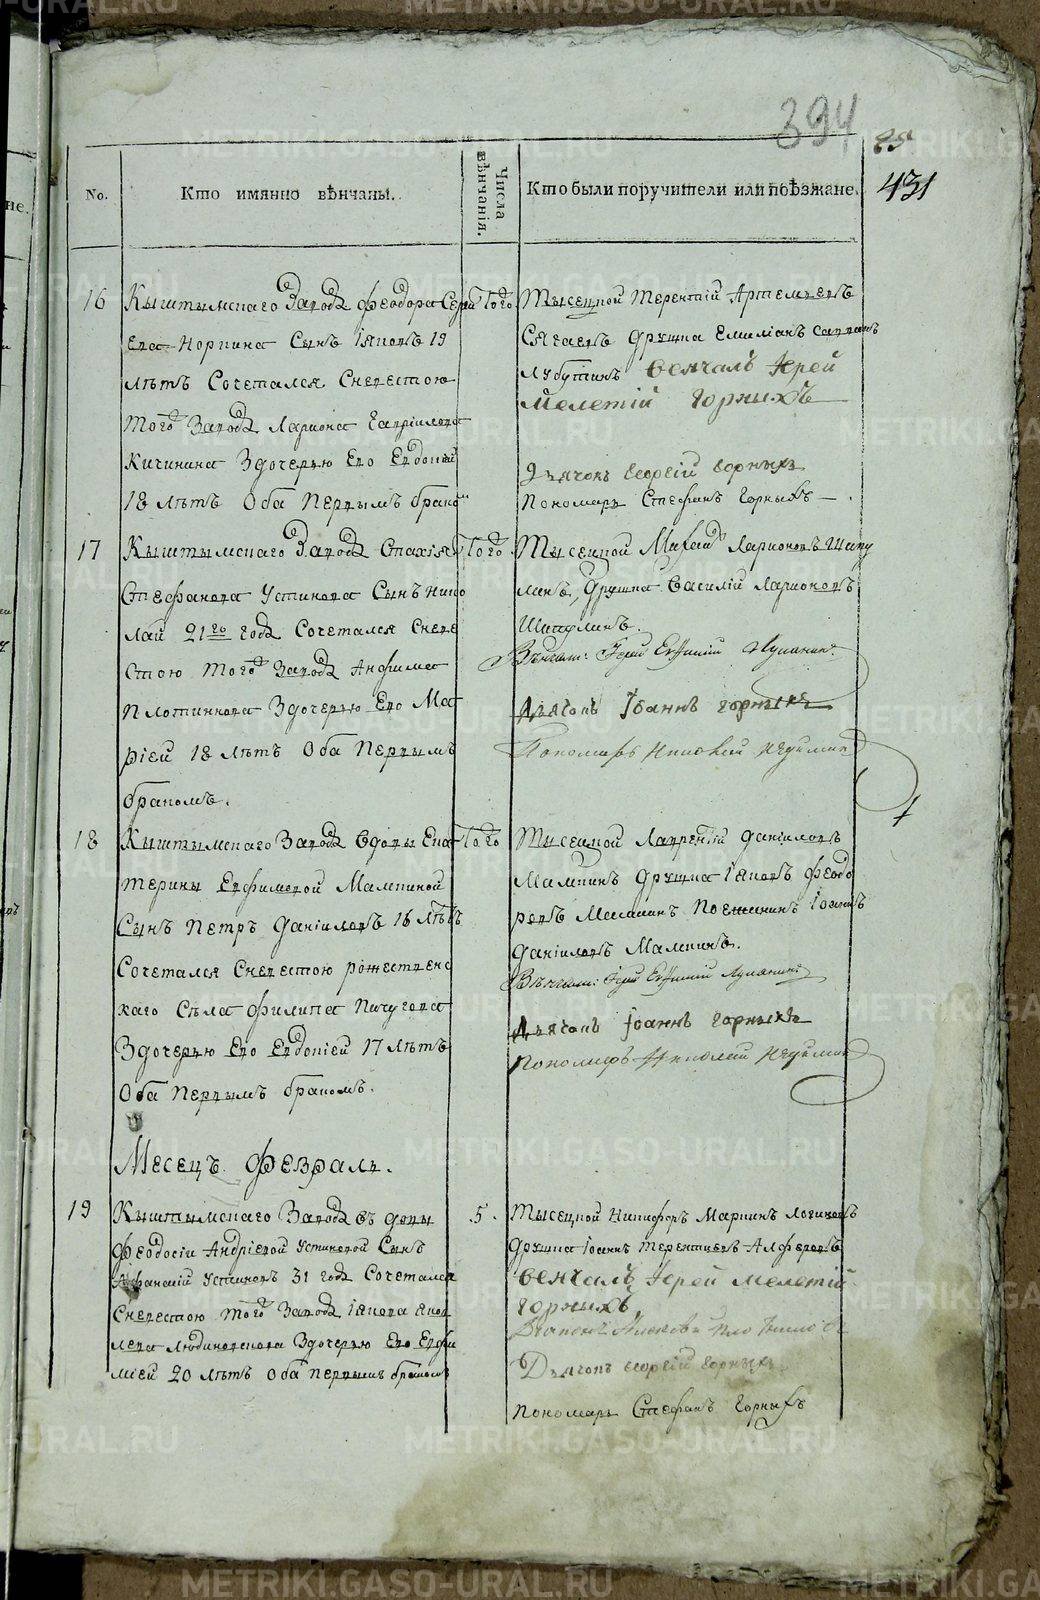 394
85
431
No.
Кто имянно вѣнчаны.
Числа вѣнчанія.
Кто были поручители или поѣзжане.
16
Кыштымскаго Завода Феодора Сергѣ
ева Норкина Сынъ Іяковъ 19
лѣтъ Сочетался Сневестою
того Завода Лариона Гавріилова
Кичинина Здочерью Его Евдокіей
18 лѣтъ Оба Первымъ бракомъ
Того
Тысецкой Терентій Артемьевъ
дружка Емилианъ
Венчалъ Іерей
Мелетій Горныхъ
Дьячокъ Георгій Горныхъ
Пономарь Стефанъ Горныхъ
17
Кыштымскаго Завода
Стефанова Устинова Сынъ Нико
лай 21го года Сочетался Сневе
стою того Завода Анфима
Плотникова Здочерью Его Ма
ріей 18 лѣтъ Оба Первымъ
бракомъ.
Того
Тысецкой Михаил Ларионовъ Шипу
линъ, Дружка Василій Ларионовъ
Шипулинъ.
Вѣнчали: Іерей Евфимій Лукапинъ
Дьячокъ Іоаннъ Горныхъ
Пономарь Николай
18
Кыштымскаго Завода Вдовы Ека
терины Евфимовой Малкиной
Сынъ Петръ Даніиловъ 16 лѣтъ
Сочетался Сневестою рожественс
каго Села Филипа Пичугова
Здочерью Его Евдокіей 17 лѣтъ
Оба Первымъ бракомъ.
Того
Тысецкой Лаврентій Даніиловъ
Малкинъ Дружка Іяковъ Феодо
ровъ Поежанинъ Іоаннъ
Даніиловъ Малкинъ.
Вѣнчали: Іерей Евфимій
Дьячокъ Іоаннъ Горныхъ
Пономарь Николай
Месецъ Февраль.
19
Кыштымскаго Завода въ довы
Феодосіи Андріевой Устиновой Сынъ
Афанасий Устиновъ 31 года Сочетался
Сневестою того Завода Іякова Яков
лева Людиновскова Здочерью Его Евфи
міей 20 лѣтъ Оба первымъ бракомъ
5.
Тысецкой Никифоръ Маркинъ Логиновъ
дружка Іоаннъ Терентиевъ Алферовъ
Венчалъ Іерей Мелетій
Горныхъ
Дьячокъ Георгій Горныхъ
Пономарь Стефанъ Горныхъ
METRIKI.GASO-URAL.RU